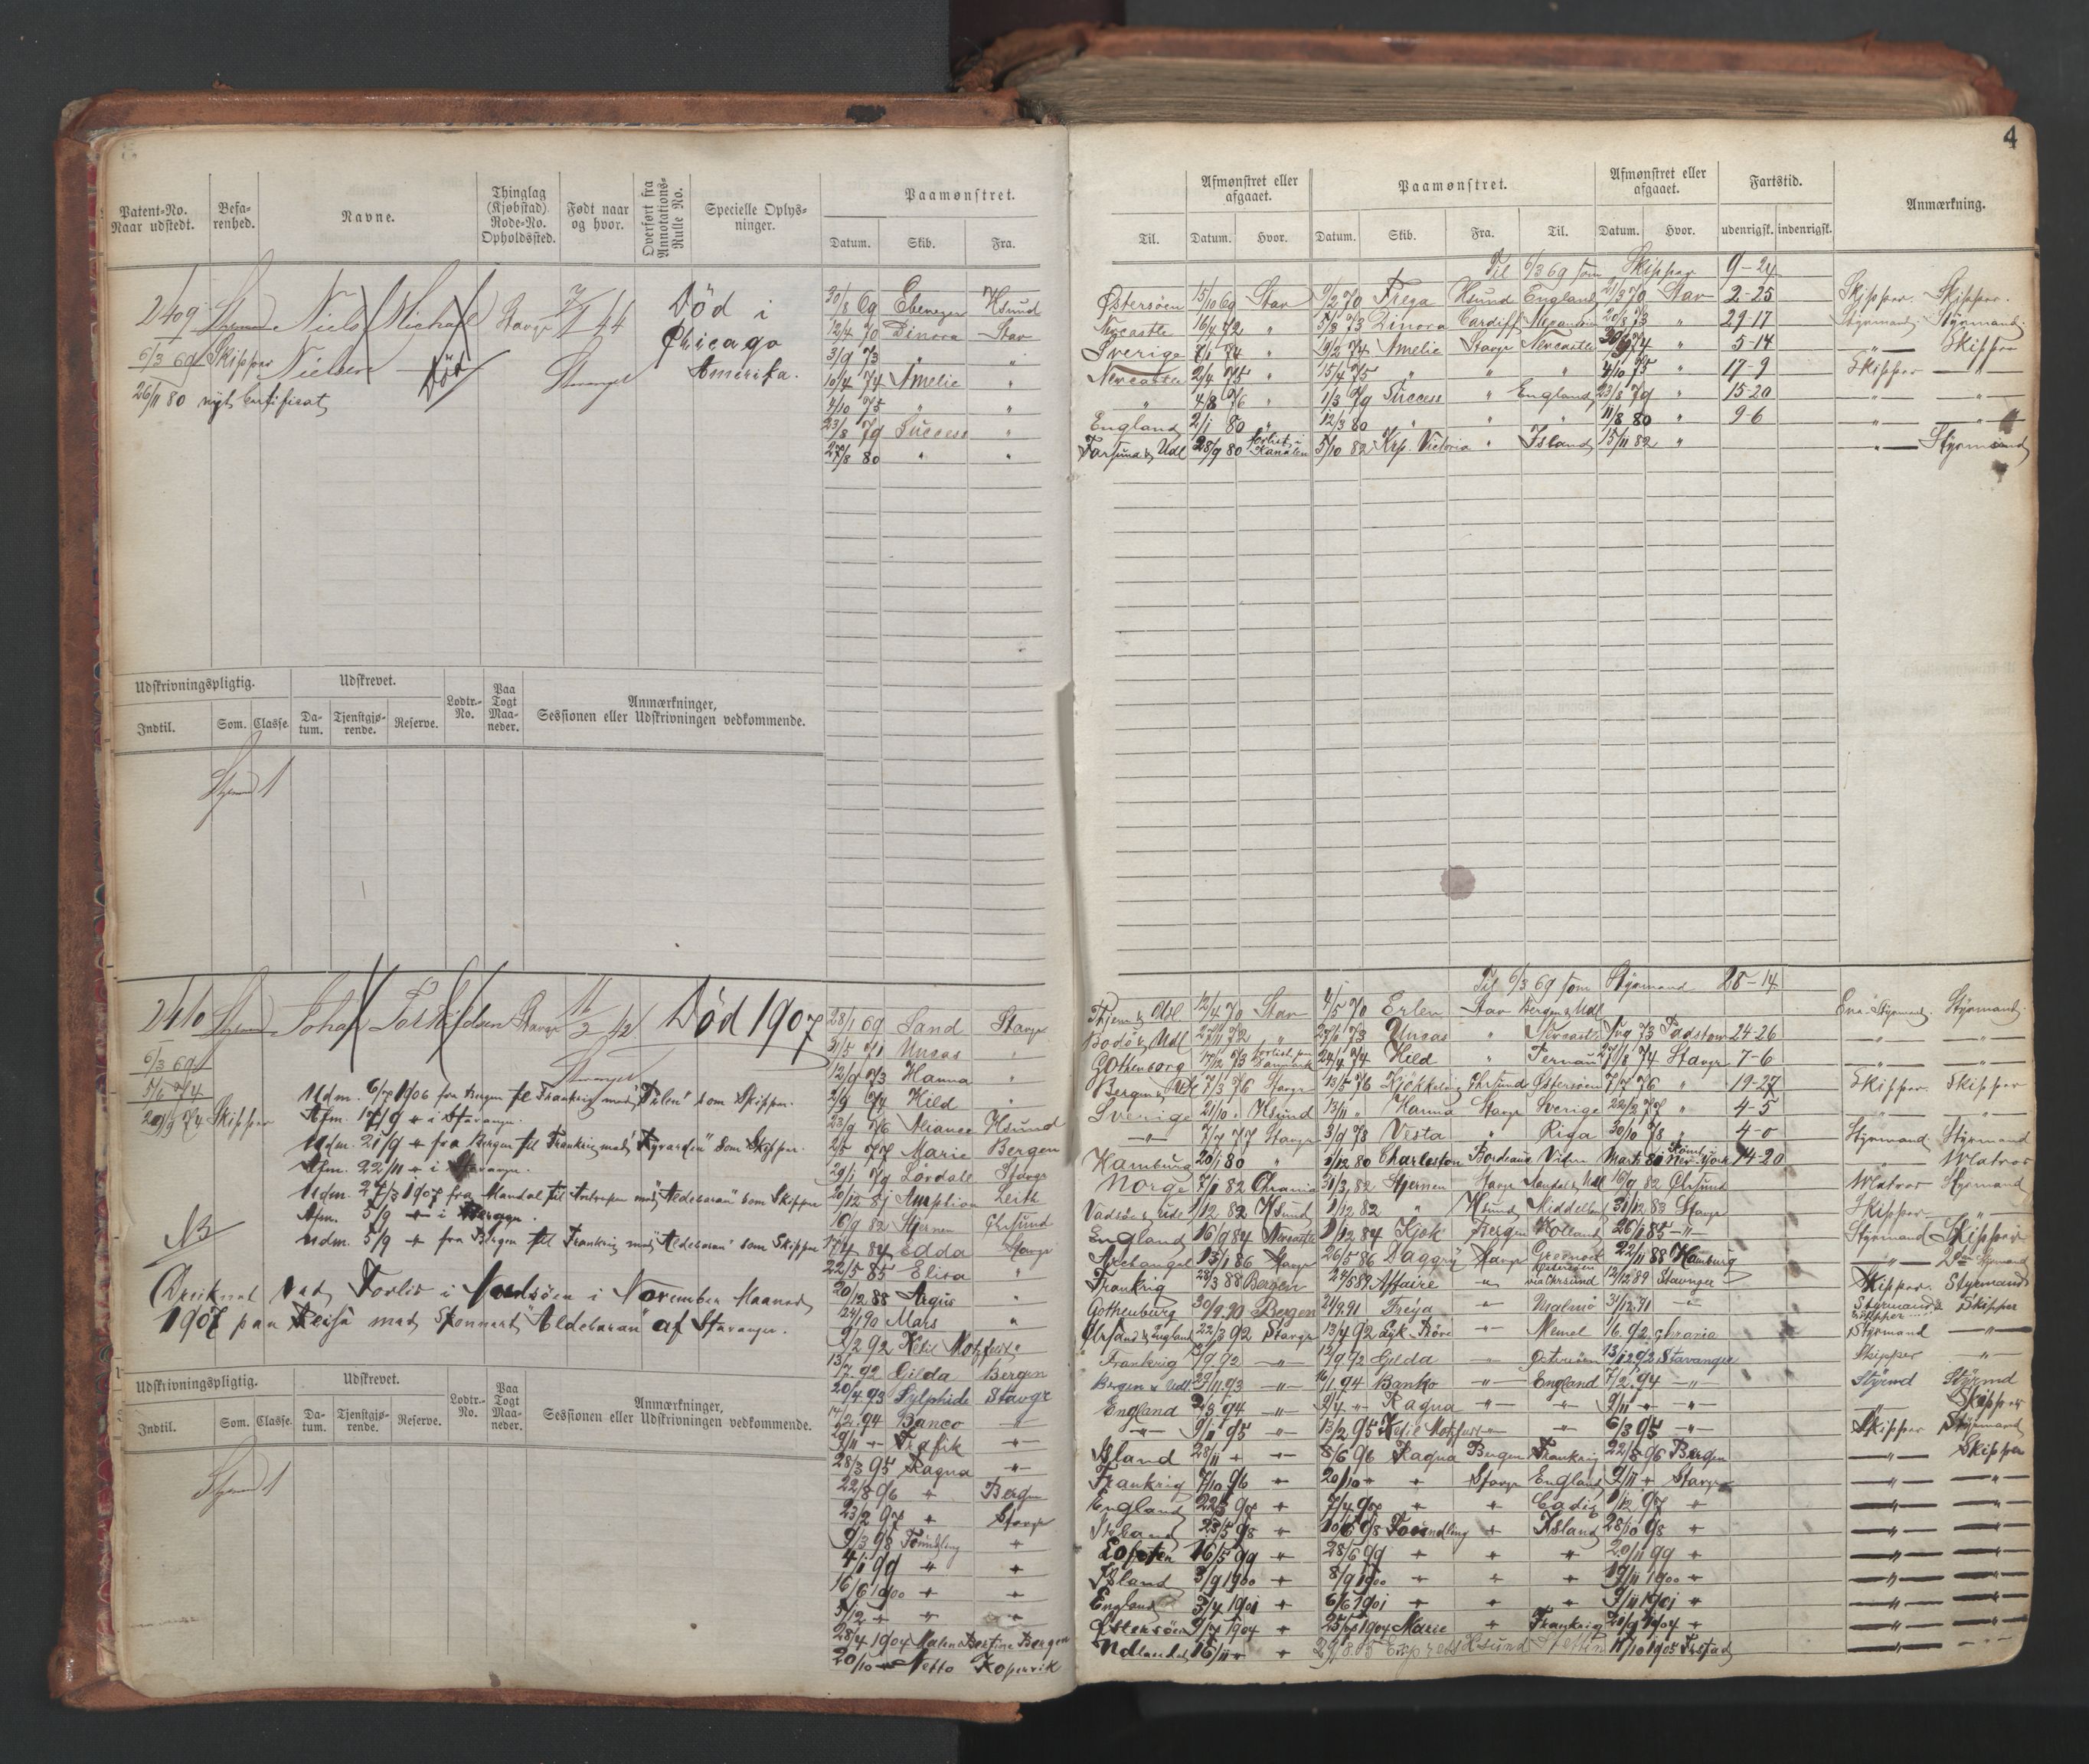 4
Patent-No. Naar udstedt. Befa-renhed. Navne. Thinglag (Kjøbstad) Rode-No. Opholdssted. Født naar og hvor. Overført fra Annotations-Rulle No. Specielle Oplys-ninger. Paamønstret. Datum. Skib. Fra.
Til. Afmønstret eller afgaaet. Datum. Hvor. Paamønstret. Datum. Skib. Fra. Til. Afmønstret eller afgaaet. Datum. Hvor. Fartstid. udenrigsk. indenrigsk. Anmærkning.
Til 6/3 69 som Skipper 9-24
2409 Niels Michael Nielsen Død
6/3 69 Skipper
26/11 80 nyt Certifikat
Stavanger
Død i
Chicago
Amerika.
30/8 69 Ebenezer Hsund Østersøen 15/10 69 Stav 9/2 70 Freya Hsund England 21/3 70 Stav 2-25 Skipper. Skipper.
12/4 70 Dinora Stav Newcastle 16/4 72 " 5/8 73 Dinora Cardiff 20/8 73 " 29-17 Styrmand. Styrmand.
3/9 73 " " Sverige 7/1 74 " 19/2 74 Amelie Stavgr Newcastle 74 " 5-14 " Skipper
10/4 74 Amelie " Newcastle 2/4 75 " 15/4 75 " " " 4/10 75 " 17-9 Skipper "
4/10 75 " " " 4/8 76 " 1/3 79 Success " England 23/8 79 " 15-20 " "
23/8 79 Success " England 2/1 80 " 12/3 80 " " " 11/8 80 " 9-6 " "
27/8 80 " " Farsund & Udl 28/9 80 forlist i Kanalen 5/10 82 Krp. Victoria " Island 15/11 82 " " Styrmand
Udskrivningspligtig. Udskrevet. Lodtr.-No. Paa Togt Maa-neder. Anmærkninger, Sessionen eller Udskrivningen vedkommende.
Indtil. Som. Classe. Da-tum. Tjenstgjø-rende. Reserve.
1
Til 6/3 69 som Styrmand 28-14
2410 Johan Torkildsen Stavgr 11/2 42 Død 1907
6/3 69
5/6 74
29/9 74 Skipper
Stavanger
Udm. 6/7 1906 fra Bergen til Frankrig med som Skipper.
Afm. 17/9 " i Stavanger.
Udm. 21/9 " fra Bergen til Frankrig med som Skipper.
Afm. 22/11 " i Stavanger.
Udm. 27/3 1907 fra Mandal til Antwerpen med "Aldebaran" som Skipper
Afm. 3/9 " i Bergen.
Udm. 5/9 " fra Bergen til Frankrig med "Aldebaran" som Skipper
NB
Druknet ved Forlis i Nordsøen i November Maaned
1907 paa Reise med Skonnert "Aldebaran" af Stavanger.
28/1 69 Sand Stavgr Thjem & Udl 12/4 70 Stav 4/5 70 Erlen Stav Bergen & Udl Styrmand. Styrmand.
31/5 71 Ungas " Bodö & Udl 27/11 72 " 27/6 73 Ungas " Newcastle Aug 73 Padstow 24-26 " "
12/9 73 Hanna " Gothenborg 17/12 73 24/4 74 Hild " Pernau 27/8 74 Stavgr 7-6 " "
2/9 74 Hild " Bergen & Udl 7/3 76 Stavgr 13/5 76 Chrsund Østersøen 7/7 76 " 19-27 Skipper Skipper
23/9 76 Aliance Hsund Sverige 21/10 " Hsund 13/11 " Hanna Stavgr Sverige 22/2 77 " 4-5 " "
2/5 77 Marie Bergen " 7/7 77 Stavgr 3/9 78 Vesta " Riga 30/10 78 " 4-0 Styrmand Styrmand
29/1 79 Lørdale Stavgr Hamburg 20/1 80 " 9/12 80 Charleston Bordeaux Marts 81 New York 14-20 " Matros
20/12 81 Leith Norge 7/1 82 Chrania 31/3 82 Stjernen Stavgr 16/9 82 Chrsund Matros Styrmand
16/9 82 Stjernen Chrsund Vadsø & Udl 1/12 82 Hsund 1/12 82 " Hsund Middelhav 31/12 83 Stavgr Skipper "
17/4 84 Edda Stavgr England 16/9 84 Newcastle 11/12 84 Gjøk Bergen Holland 26/1 85 " Styrmand Skipper
22/5 85 Elisa " Archangel 13/1 86 Stavgr 26/5 86 Daggry Stavgr 22/11 88 Hamburg " 2den Styrmand
20/12 88 Argus " Frankrig 28/3 88 Bergen 24/5 89 Affaire " Østersøen via Chrsund 12/12 89 Stavanger Skipper Styrmand
24/1 90 Mars " Gothenburg 30/9 90 Bergen 21/9 91 Freya " 31/12 91 " Styrmand & Skipper Skipper
9/2 92 Ketil Motzfeldt " Chrsand & England 22/3 92 Stavgr 13/4 92 " Memel 16. 92 Chrania Styrmand "
13/7 92 Gilda Bergen Frankrig 9/9 92 " 12/9 92 Gilda " Østersøen 13/12 92 Stavanger Skipper "
20/4 93 Sylphide Stavgr Bergen & Udl 29/11 93 " 16/1 94 Banko " England 7/2 94 " Styrmd Styrmd
14/2 94 Banco " England 2/3 94 " 9/4 " Ragna " " 9/11 " " " Skipper
9/11 " Trafik " " 9/1 95 " 13/2 95 Ketil Motzfeldt " " 6/3 95 " Skipper Styrmand
28/3 95 Ragna " Island 28/11 " " 8/6 96 Ragna Bergen Frankrig 22/8 96 Bergen " Skipper
22/8 96 " Bergen Frankrig 7/10 96 " 20/10 " " Stavgr England 9/11 " Stavgr " "
23/2 97 " Stavgr England 22/3 97 " 7/4 97 " " Cadiz 1/12 97 " " "
9/3 98 Foundling " Island 28/5 98 " 10/6 98 Foundling " Island 28/10 98 " " "
4/1 99 " " Lofoten 16/5 99 " 28/6 99 " " " 20/11 99 " " "
16/6 1900 " " Island 3/9 1900 " 8/9 1900 " " " 19/11 1900 " " "
3/12 " " " England 3/4 1901 " 6/6 1901 " " " 9/11 1901 " " "
28/4 1904 Malena Bertine Bergen Østersøen 9/7 1904 " 25/7 1904 Marie " Frankrig 20/9 1904 " " "
20/10 " Netto Kopervik Udlandet 15/11 " " 29/8 05 Express Hsund Stettin 11/10 1905 Frstad "
Udskrivningspligtig. Udskrevet. Lodtr.-No. Paa Togt Maa-neder. Anmærkninger, Sessionen eller Udskrivningen vedkommende.
Indtil. Som. Classe. Da-tum. Tjenstgjø-rende. Reserve.
1